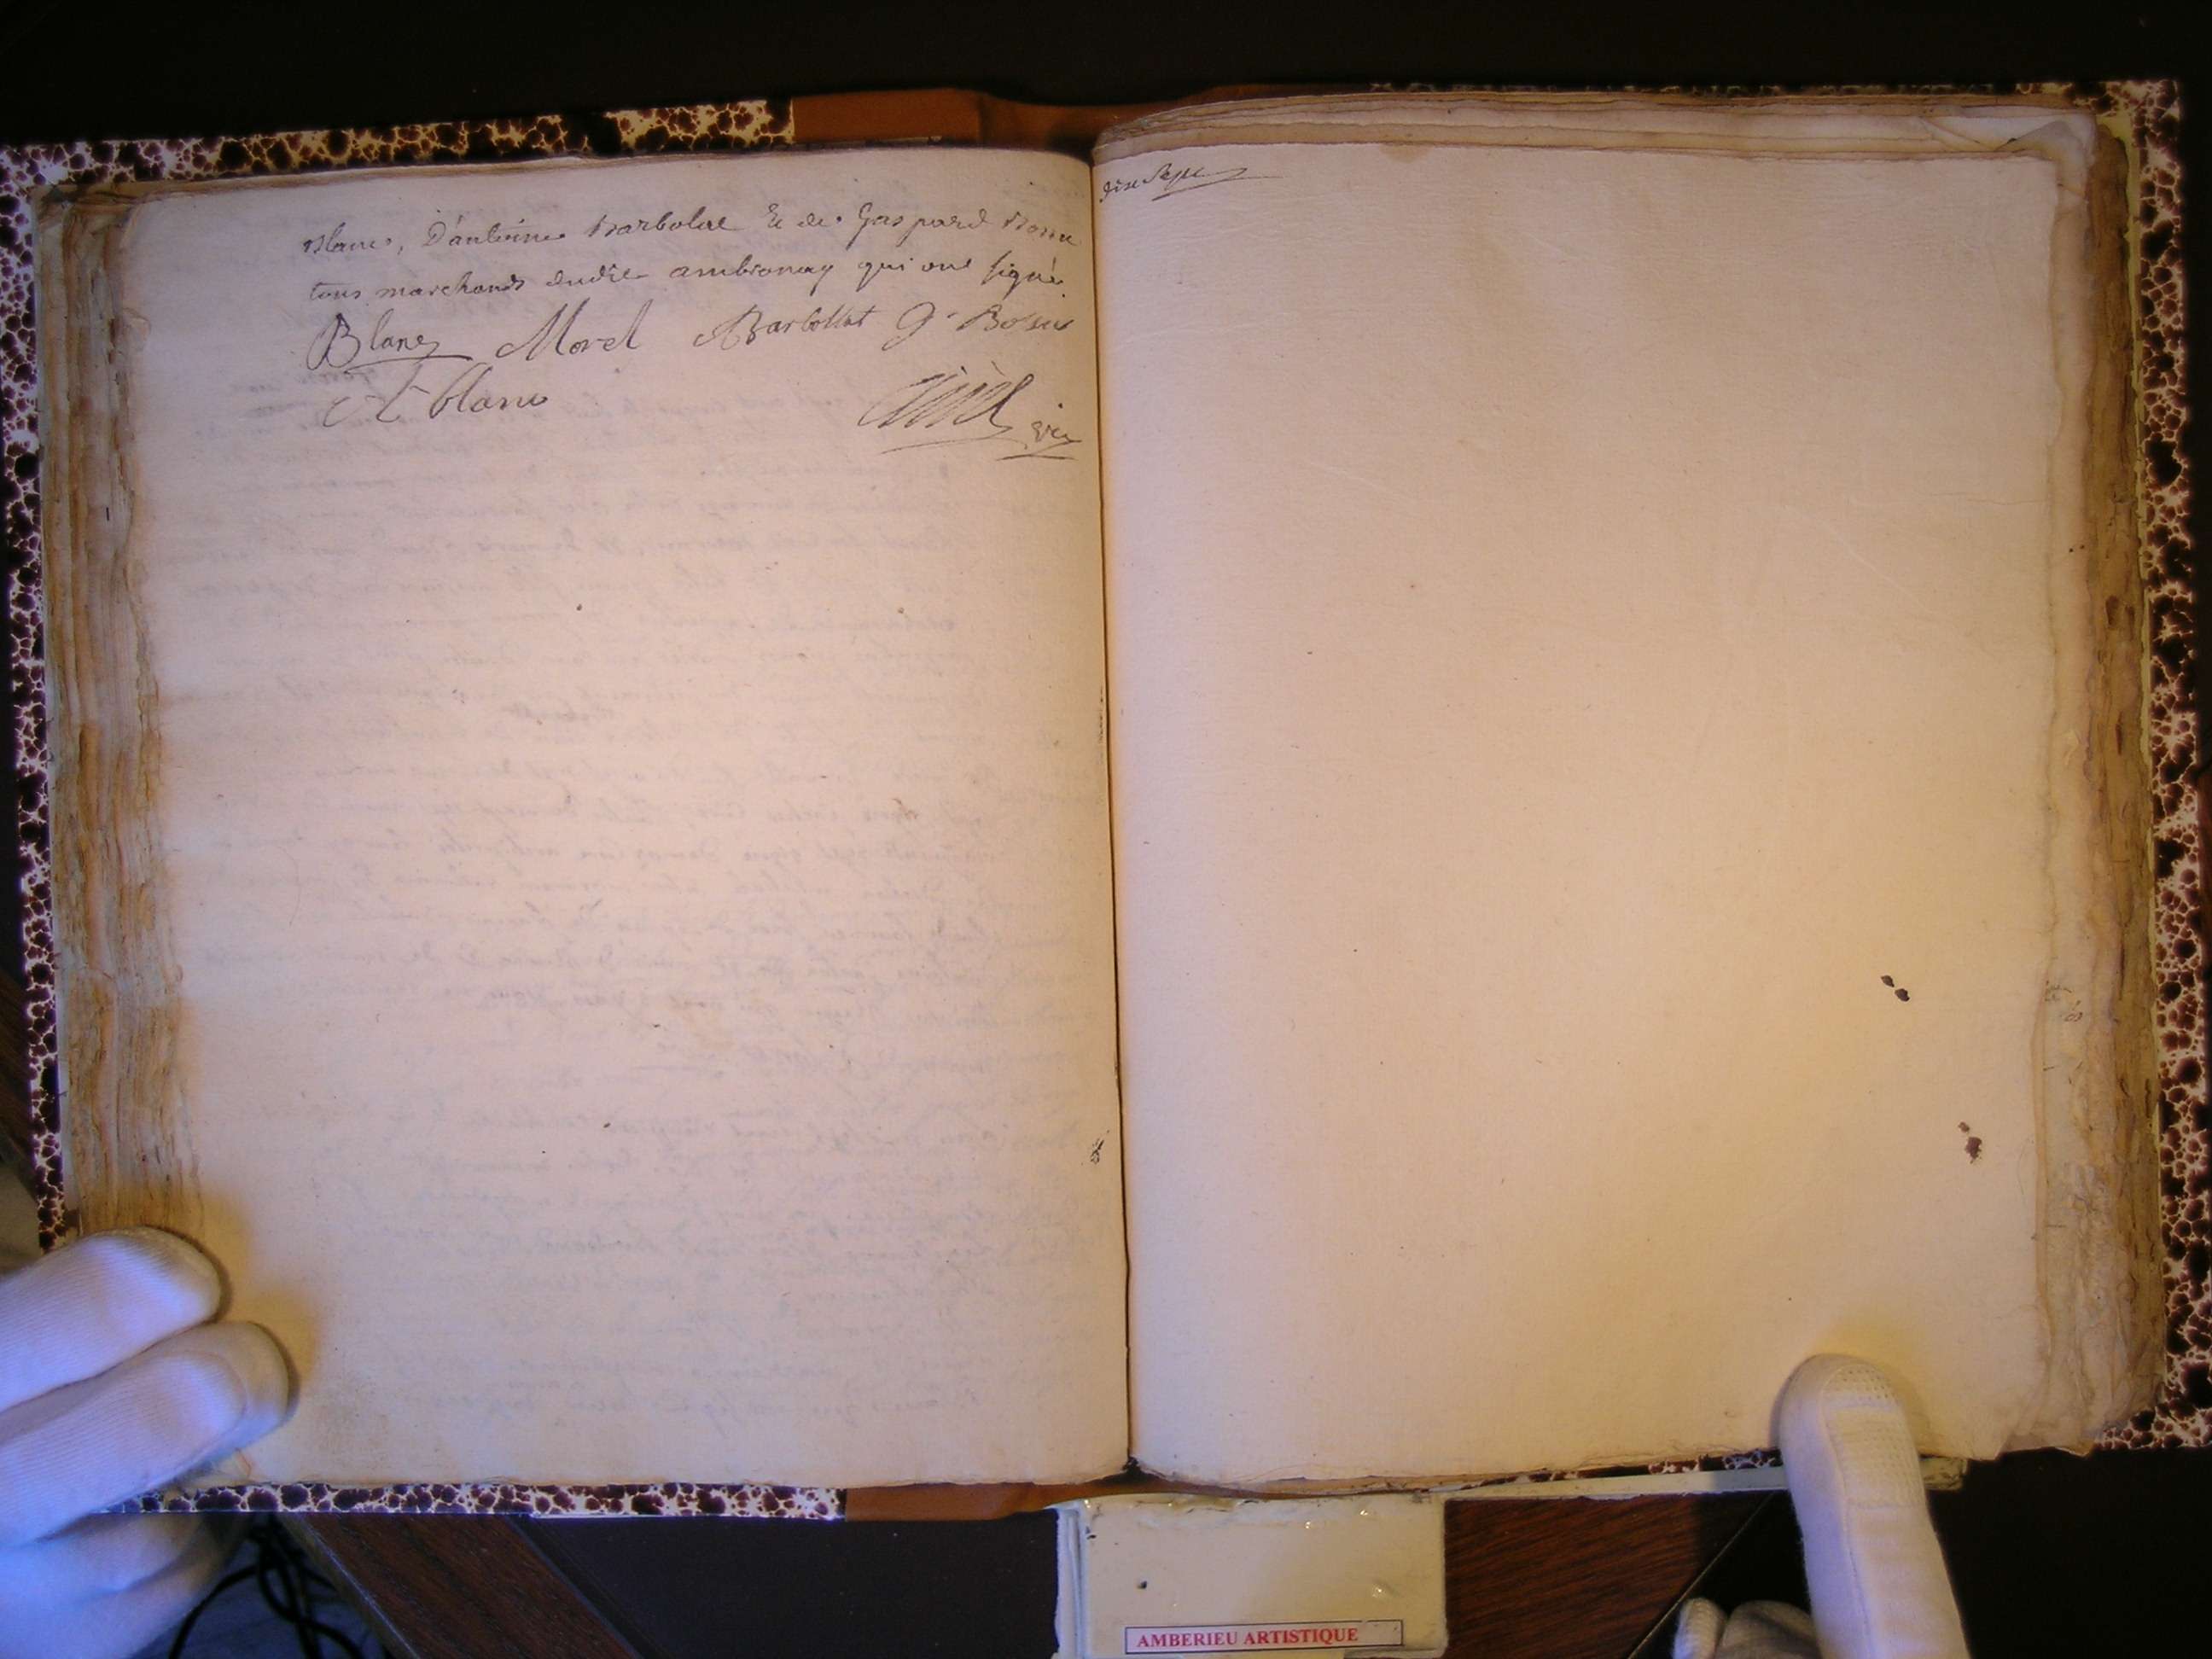 Blanc, D'antoine Barbolat & de Gaspard Bossu
tous marchands dudit ambronay qui ont signé
Blanc Morel ABarbollat G Bossu
Blanc
dix Sept
AMBERIEU ARTISTIQUE